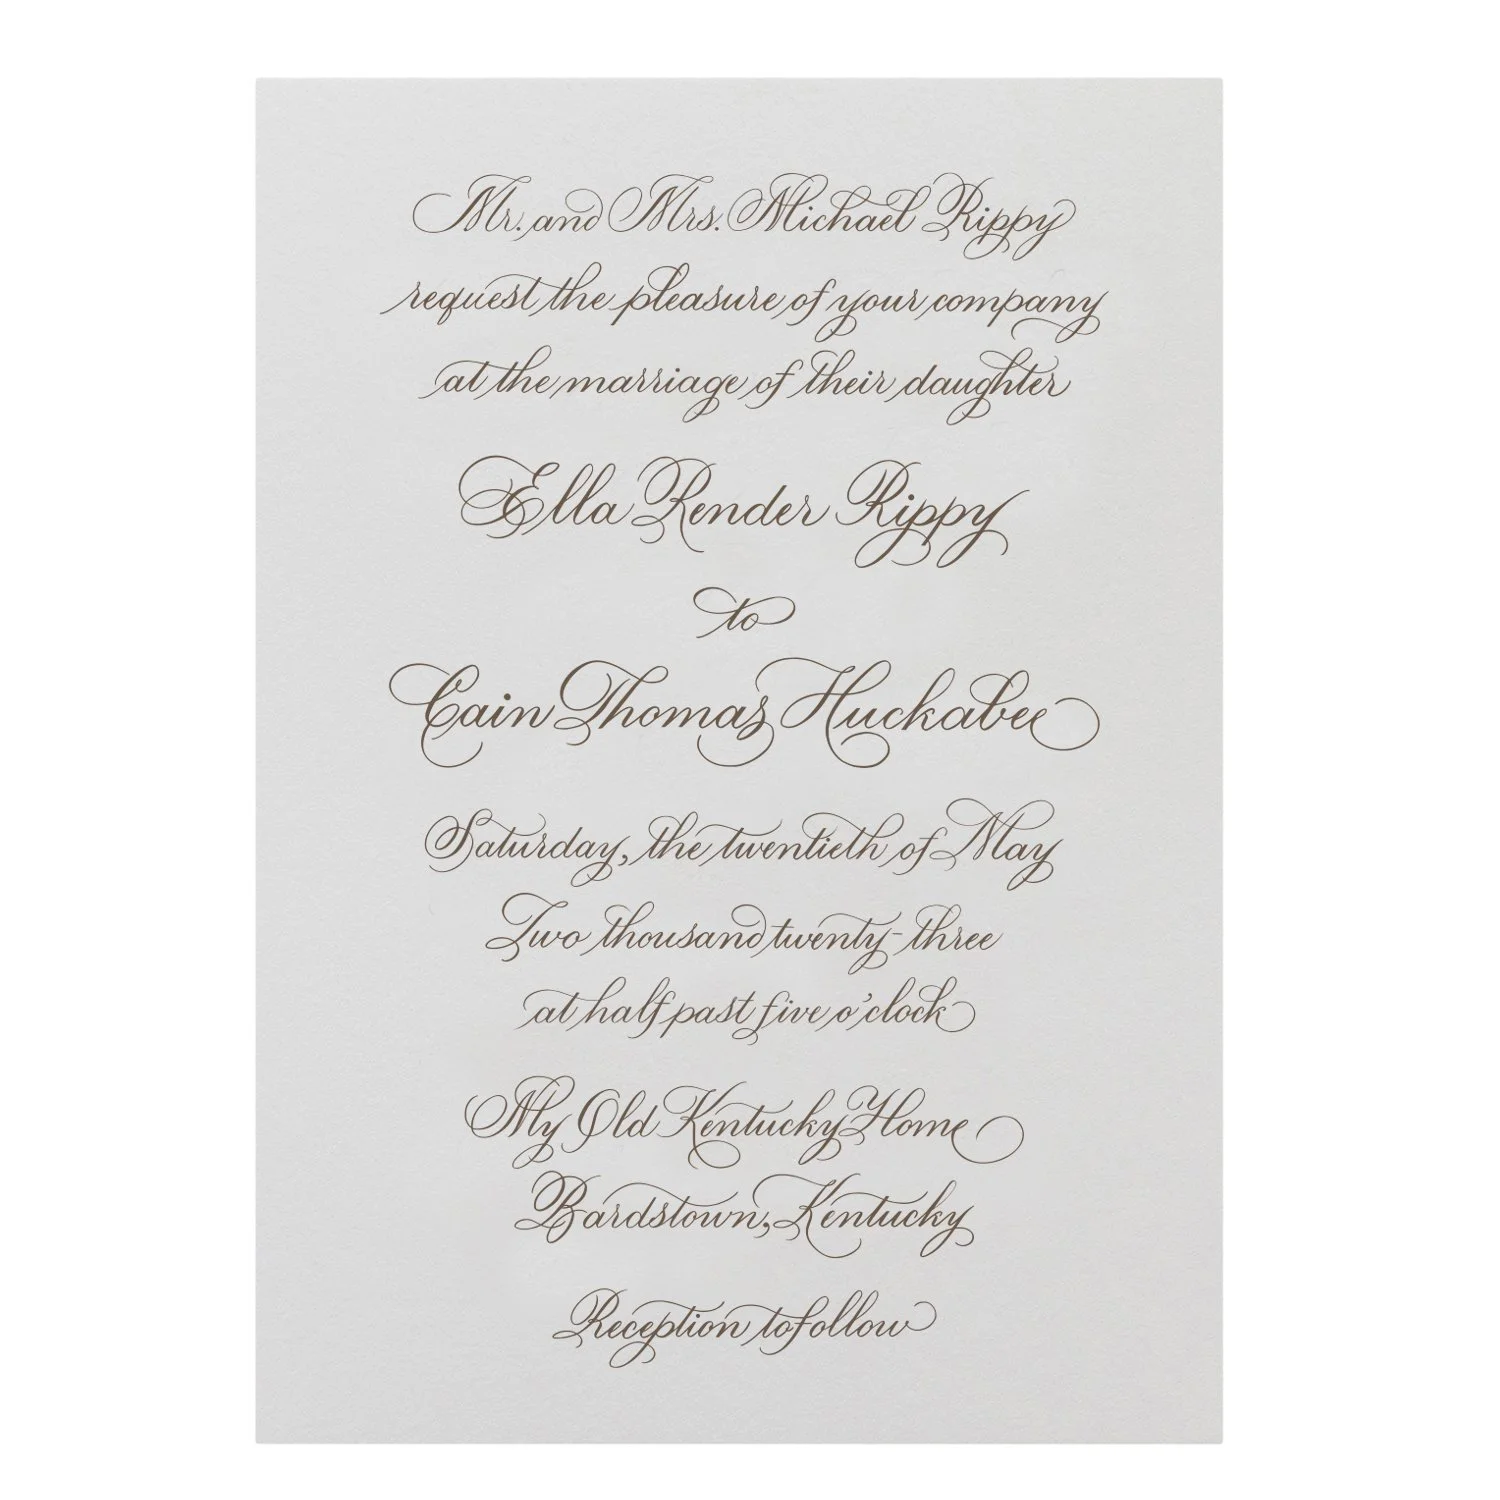 Mr. and Mrs. Michael Rippy
request the pleasure of your company
at the marriage of their daughter
Ella Render Rippy
to
Cain Thomas Huckabee
Saturday, the twentieth of May
Two thousand twenty-three
at half past five o'clock
My Old Kentucky Home
Bardstown, Kentucky
Reception to follow